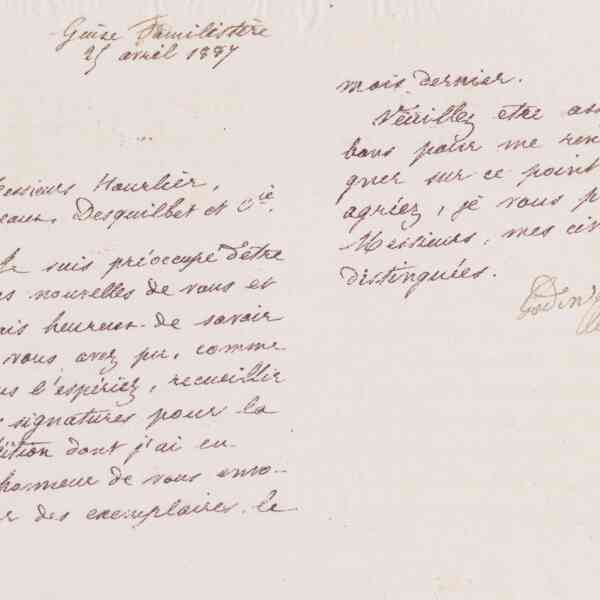 Guise Familistère
25 avril 1887
Messieurs Hourlier,
Desquilbet et Cie
Je suis préoccupé d'être
nouvelles de vous et
heureux de savoir
vous avez pu, comme
l'espériez, recueillir
signatures pour la
dont j'ai eu
honneur de vous envo-
des exemplaires le
mois dernier.
Veuillez etre as
bons pour me ren
gner sur ce point
agréez, je vous p
Messieurs, mes ci
distinguées.
Godin